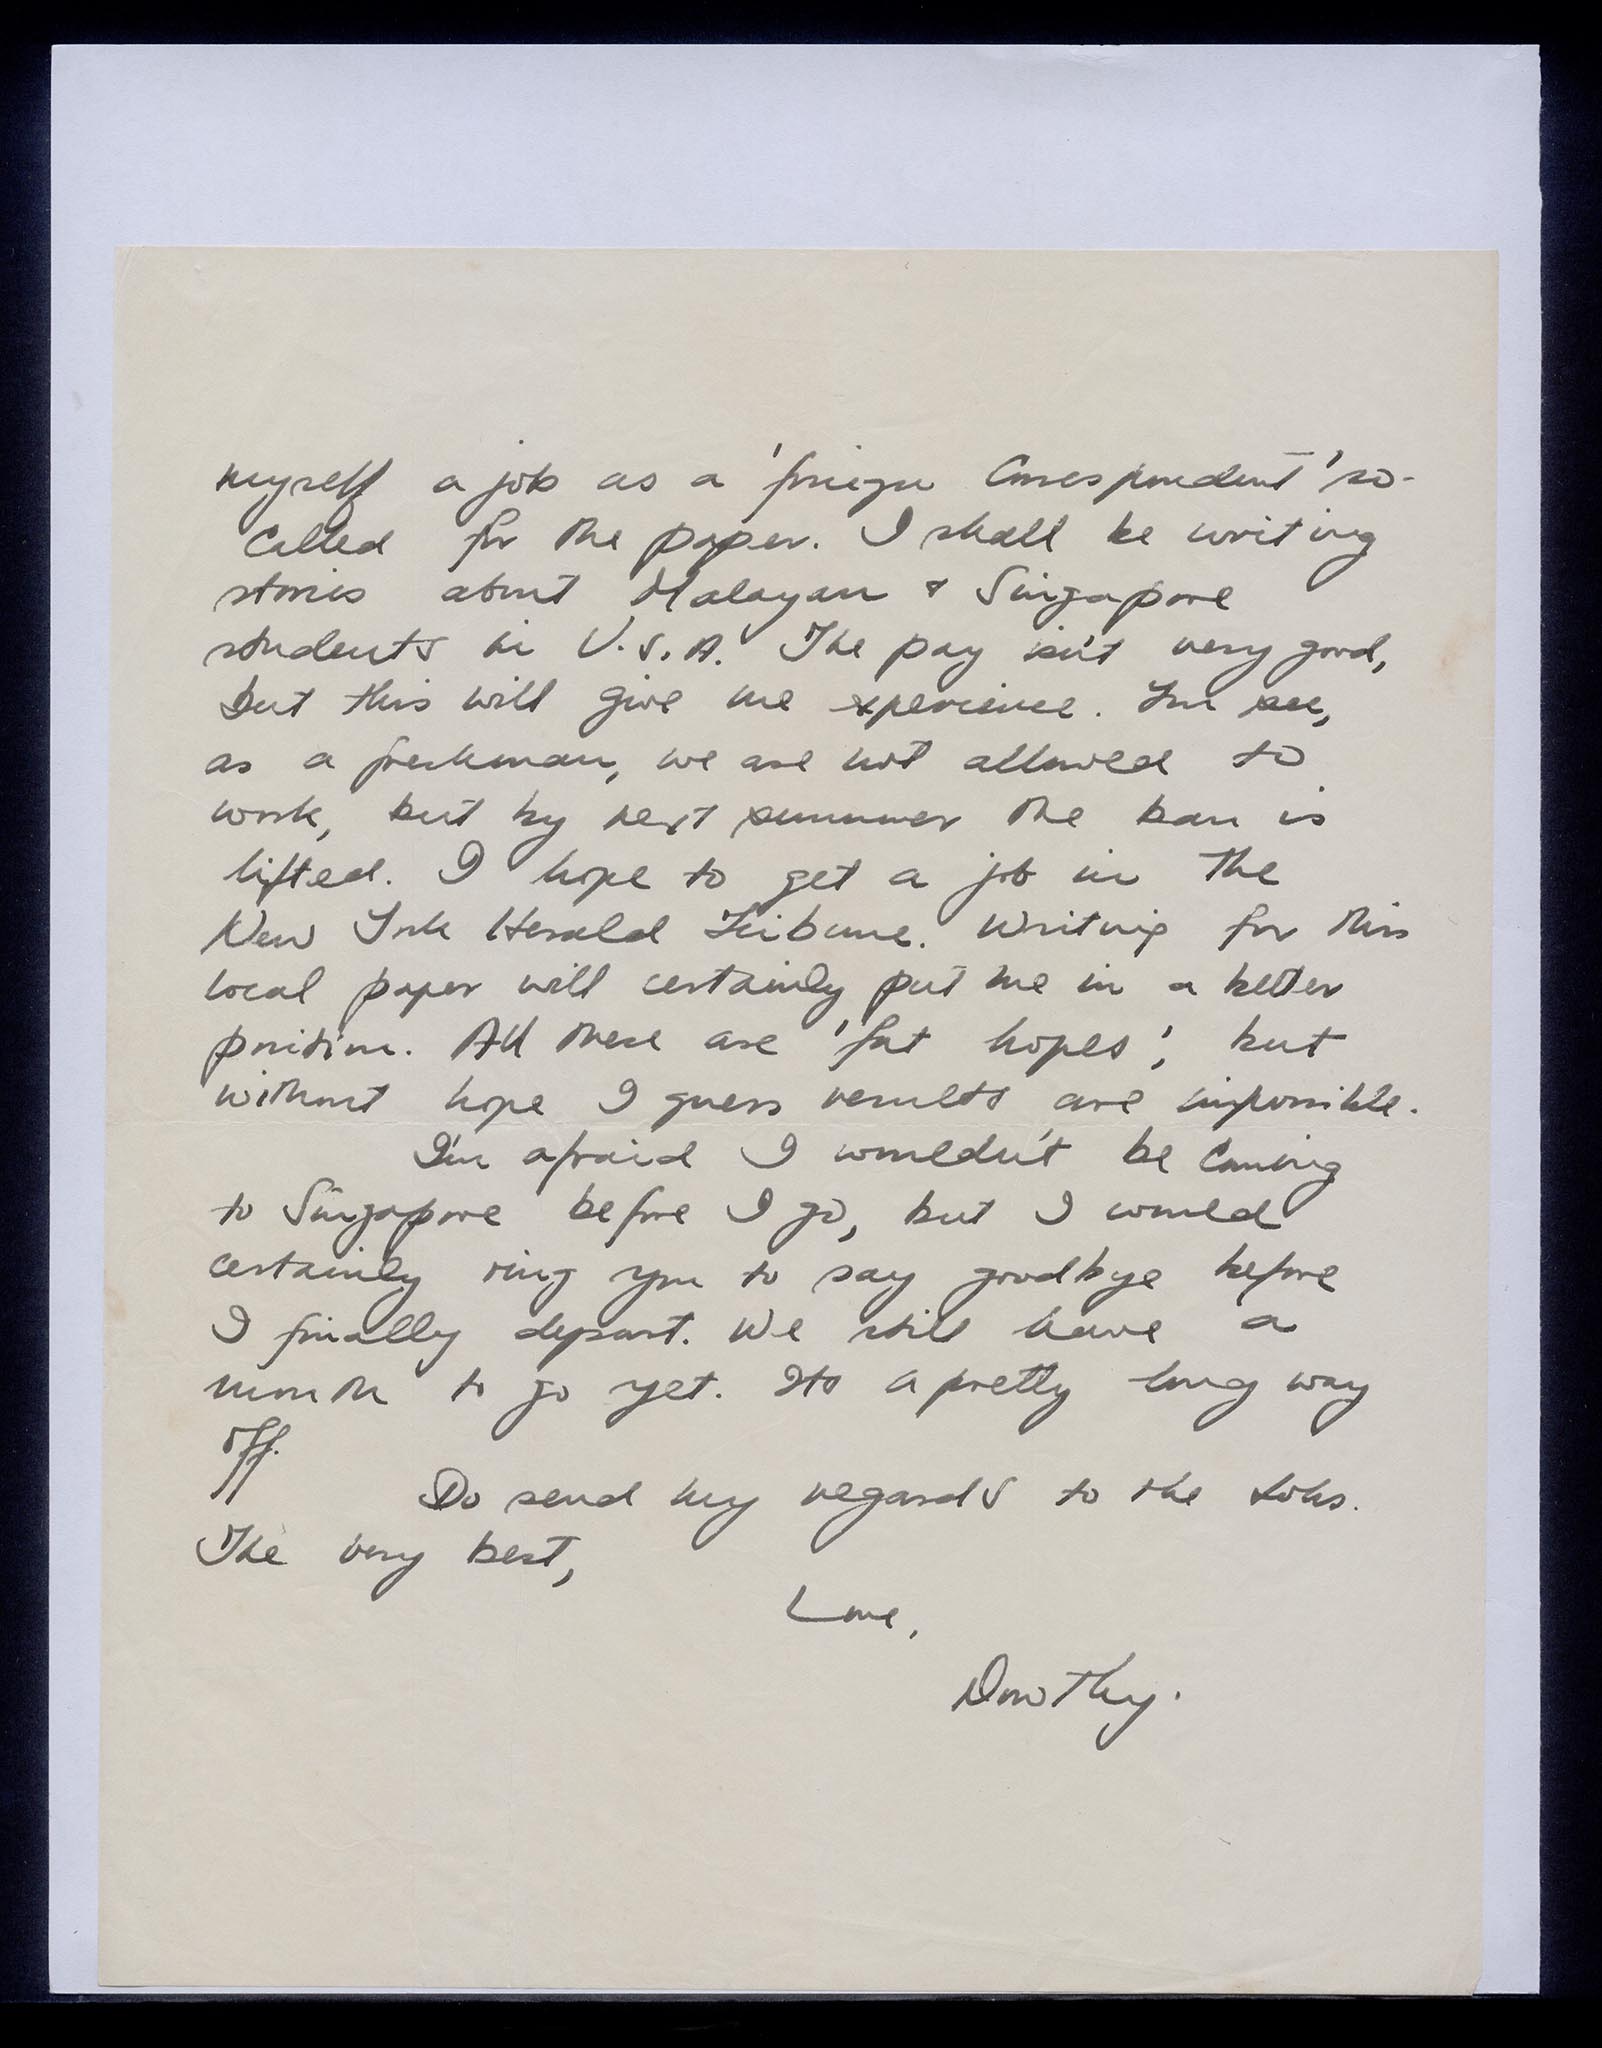 myself a job as a 'foreign Correspondent' so-
called for the paper. I shall be writing
stories about Malayan & Singapore
students in U.S.A. The pay isn't very good,
but this will give me experience. You see,
as a freshman, we are not allowed to
work, but by next summer the ban is
lifted. I hope to get a job in the
New York Herald Tribune. Writing for this
local paper will certainly put me in a better
position. All these are 'fat hopes', but
without hope I guess results are impossible.
I'm afraid I wouldn't be coming
to Singapore before I go, but I would
certainly ring you to say goodbye before
I finally depart. We still have a
month to go yet. Its a pretty long way
off.
Do send my regards to the Lohs.
The very best,
Love,
Dorothy.